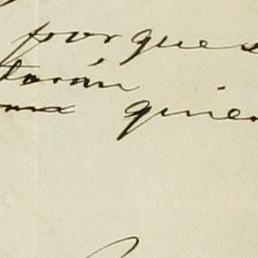 porque
tarán
quien